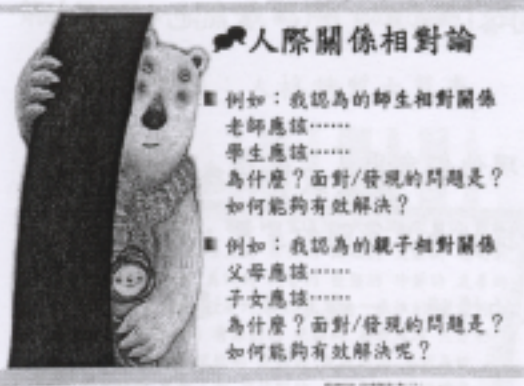 人際關係相對論
例如：我認為的師生相對關係
老師應該……
學生應該……
為什麼？面對/發現的問題是？
如何能夠有效解決？
例如：我認為的親子相對關係
父母應該……
子女應該……
為什麼？面對/發現的問題是？
如何能夠有效解決呢？